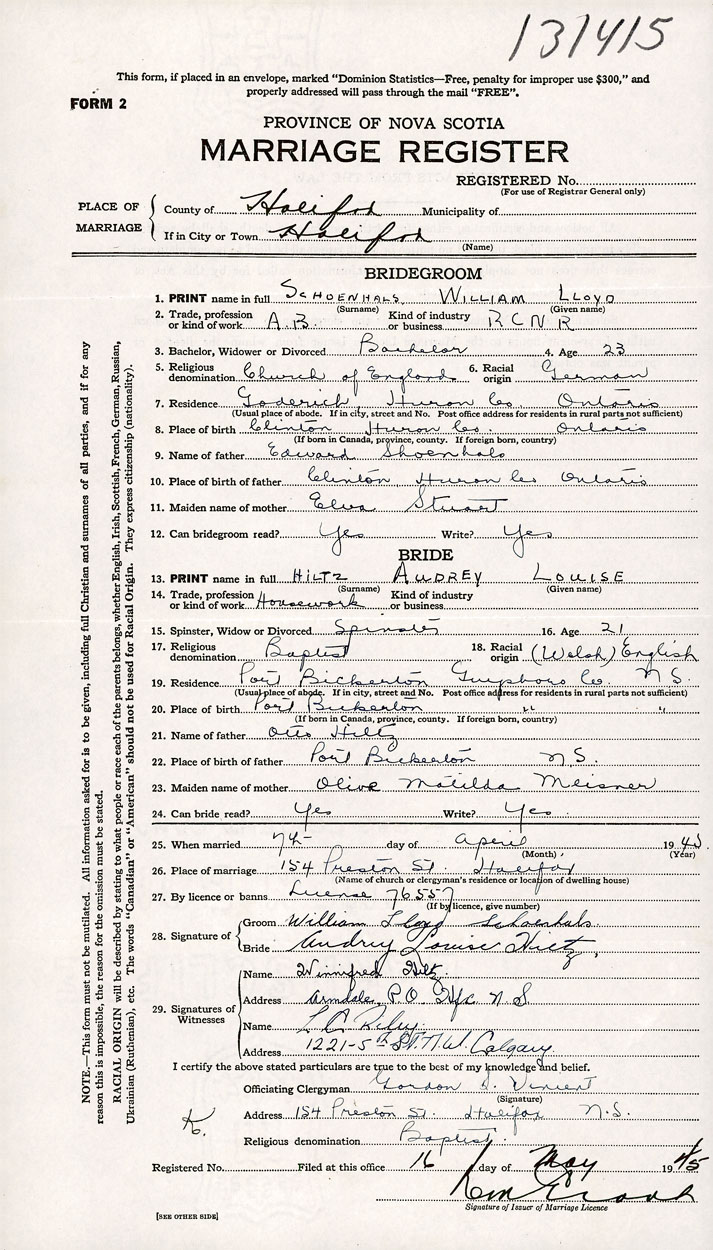 131415
This form, if placed in an envelope, marked "Dominion Statistics—Free, penalty for improper use $300," and
properly addressed will pass through the mail "FREE".
FORM 2
PROVINCE OF NOVA SCOTIA
MARRIAGE REGISTER
REGISTERED No.
(For use of Registrar General only)
PLACE OF MARRIAGE
County of Halifax Municipality of
If in City or Town Halifax
(Name)
BRIDEGROOM
1. PRINT name in full SCHOENHALS WILLIAM LLOYD
(Surname) (Given name)
2. Trade, profession or kind of work A.B. Kind of industry or business R C N R
3. Bachelor, Widower or Divorced Bachelor 4. Age 23
5. Religious denomination Church of England 6. Racial origin German
7. Residence Goderich Huron Co. Ontario
(Usual place of abode. If in city, street and No. Post office address for residents in rural parts not sufficient)
8. Place of birth Clinton Huron Co. Ontario
(If born in Canada, province, county. If foreign born, country)
9. Name of father Edward Shoenhals
10. Place of birth of father Clinton, Huron Co Ontario
11. Maiden name of mother Elva Stuart
12. Can bridegroom read? Yes Write? Yes
BRIDE
13. PRINT name in full HILTZ AUDREY LOUISE
(Surname) (Given name)
14. Trade, profession or kind of work Housework Kind of industry or business
15. Spinster, Widow or Divorced Spinster 16. Age 21
17. Religious denomination Baptist 18. Racial origin (Welsh) English
19. Residence Port Bickerton Guysboro Co. N S.
(Usual place of abode. If in city, street and No. Post office address for residents in rural parts not sufficient)
20. Place of birth Port Bickerton " "
(If born in Canada, province, county. If foreign born, country)
21. Name of father Otto Hiltz
22. Place of birth of father Port Bickerton N.S.
23. Maiden name of mother Olive Matilda Meisner
24. Can bride read? Yes Write? Yes
25. When married 7th day of April 1945
(Month) (Year)
26. Place of marriage 154 Preston St. Halifax
(Name of church or clergyman's residence or location of dwelling house)
27. By licence or banns License 76557
(If by licence, give number)
28. Signature of
Groom William Lloyd Schoenhals
Bride Audrey Louise Hiltz
29. Signatures of Witnesses
Name Winnifred Hiltz
Address Armdale, P.O. Hfx. N.S.
Name L. C. Riley
Address 1221-5th St. N.W. Calgary
I certify the above stated particulars are true to the best of my knowledge and belief.
Officiating Clergyman Gordon Vincent
(Signature)
Address 154 Preston St. Halifax N.S.
K.
Religious denomination Baptist.
Registered No. Filed at this office 16 day of May 1945
Signature of Issuer of Marriage Licence
[SEE OTHER SIDE]
NOTE.—This form must not be mutilated. All information asked for is to be given, including full Christian and surnames of all parties, and if for any
reason this is impossible, the reason for the omission must be stated.
RACIAL ORIGIN will be described by stating to what people or race each of the parents belongs, whether English, Irish, Scottish, French, German, Russian,
Ukrainian (Ruthenian), etc. The words "Canadian" or "American" should not be used for Racial Origin. They express citizenship (nationality).